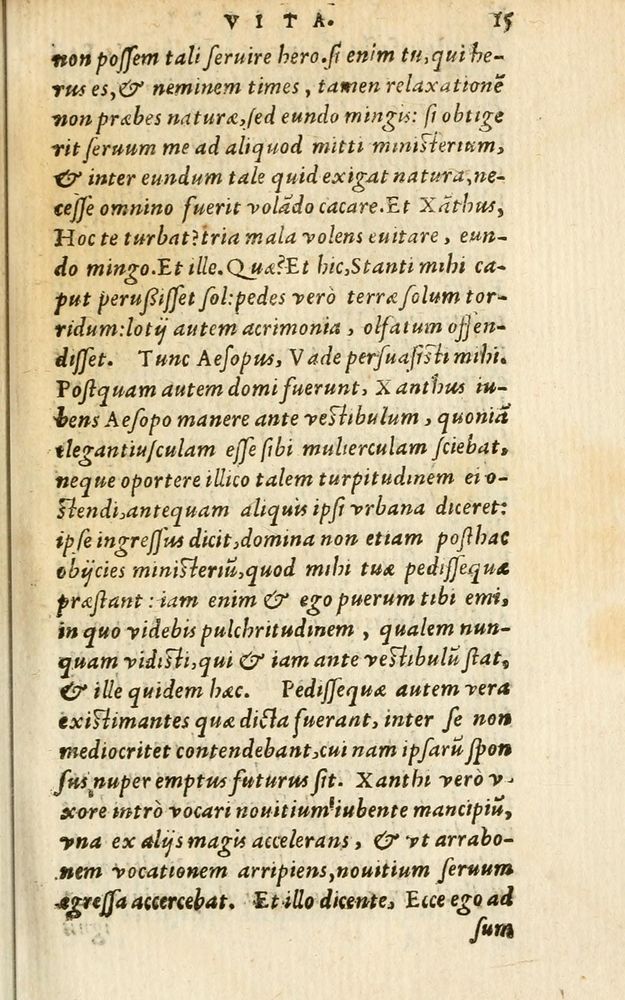 VITA. 15
non possem tali seruire hero.si enim tu,qui he-
rus es,& neminem times, tamen relaxationē
non præbes naturæ,sed eundo mingis: si obtige
rit seruum me ad aliquod mitti ministerium,
& inter eundum tale quid exigat natura,ne-
cesse omnino fuerit volādo cacare.Et Xāthus,
Hoc te turbat?tria mala volens euitare, eun-
do mingo.Et ille.Quæ?Et hic,Stanti mihi ca-
put perussisset sol:pedes verò terræ solum tor-
ridum:lotij autem acrimonia, olfatum offen-
disset. Tunc Aesopus, Vade persuasisti mihi.
Postquam autem domi fuerunt, Xanthus iu-
bens Aesopo manere ante vestibulum, quoniā
elegantiusculam esse sibi mulierculam sciebat,
neque oportere illico talem turpitudinem ei o-
stendi,antequam aliquis ipsi vrbana diceret:
ipse ingressus dicit,domina non etiam posthac
obijcies ministeriū,quod mihi tuæ pedissequæ
præstant: iam enim & ego puerum tibi emi,
in quo videbis pulchritudinem, qualem nun-
quam vidisti,qui & iam ante vestibulū stat,
& ille quidem hæc. Pedissequæ autem vera
existimantes quæ dicta fuerant, inter se non
mediocritet contendebant,cui nam ipsarū spon
sus nuper emptus futurus sit. Xanthi verò v-
xore intrò vocari nouitium iubente mancipiū,
vna ex alijs magis accelerans, & vt arrabo-
nem vocationem arripiens,nouitium seruum
egressa accercebat. Et illo dicente, Ecce ego ad
sum